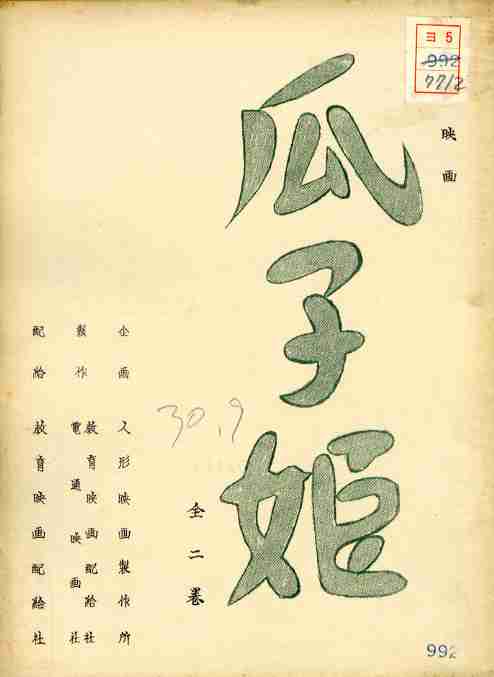 映画
瓜子姫
全二巻
30.9
企画 人形映画製作所
製作 教育映画配給社
電通映画社
配給 教育映画配給社
ヨ5
992
7712
992